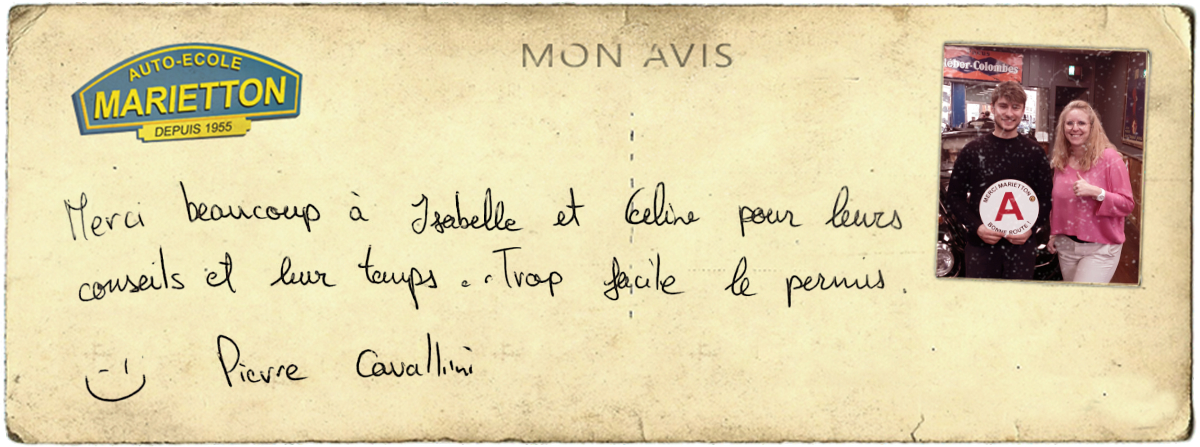 AUTO-ECOLE
MARIETTON
DEPUIS 1955
MON AVIS
Merci beaucoup à Isabelle et Céline pour leurs
conseils et leur temps... Trop facile le permis.
:-) Pierre Cavallini
Kléber-Colombes
MERCI MARIETTON
A
BONNE ROUTE !